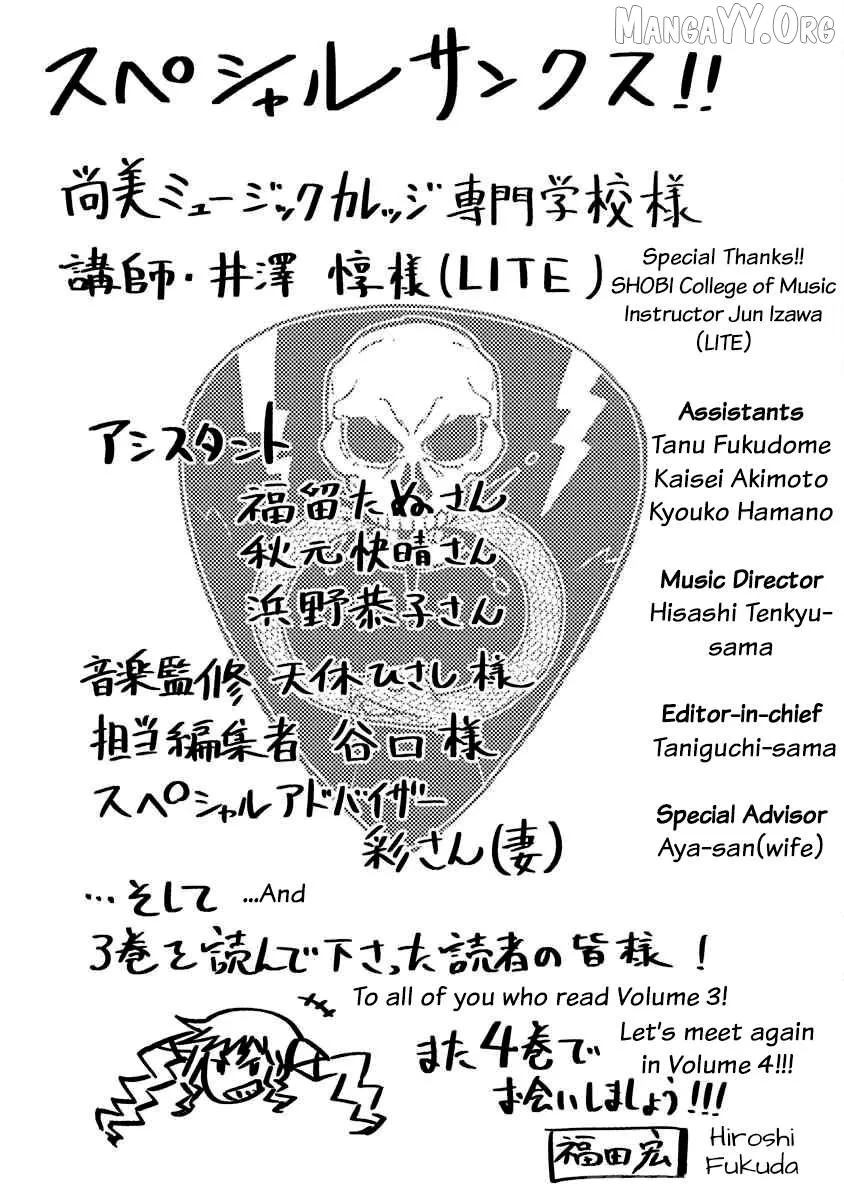 MANGAYY.ORG
スペシャルサンクス!!
尚美ミュージックカレッジ専門学校様
講師・井澤 惇様(LITE)
Special Thanks!!
SHOBI College of Music
Instructor Jun Izawa
(LITE)
アシスタント
福留たぬさん
秋元快晴さん
浜野恭子さん
Assistants
Tanu Fukudome
Kaisei Akimoto
Kyouko Hamano
音楽監修 天休ひさし様
Music Director
Hisashi Tenkyu-
sama
担当編集者 谷口様
Editor-in-chief
Taniguchi-sama
スペシャルアドバイザー
彩さん(妻)
Special Advisor
Aya-san(wife)
…そして
...And
3巻を読んで下さった読者の皆様!
To all of you who read Volume 3!
また4巻で
お会いしましょう!!!
Let's meet again
in Volume 4!!!
福田宏
Hiroshi
Fukuda